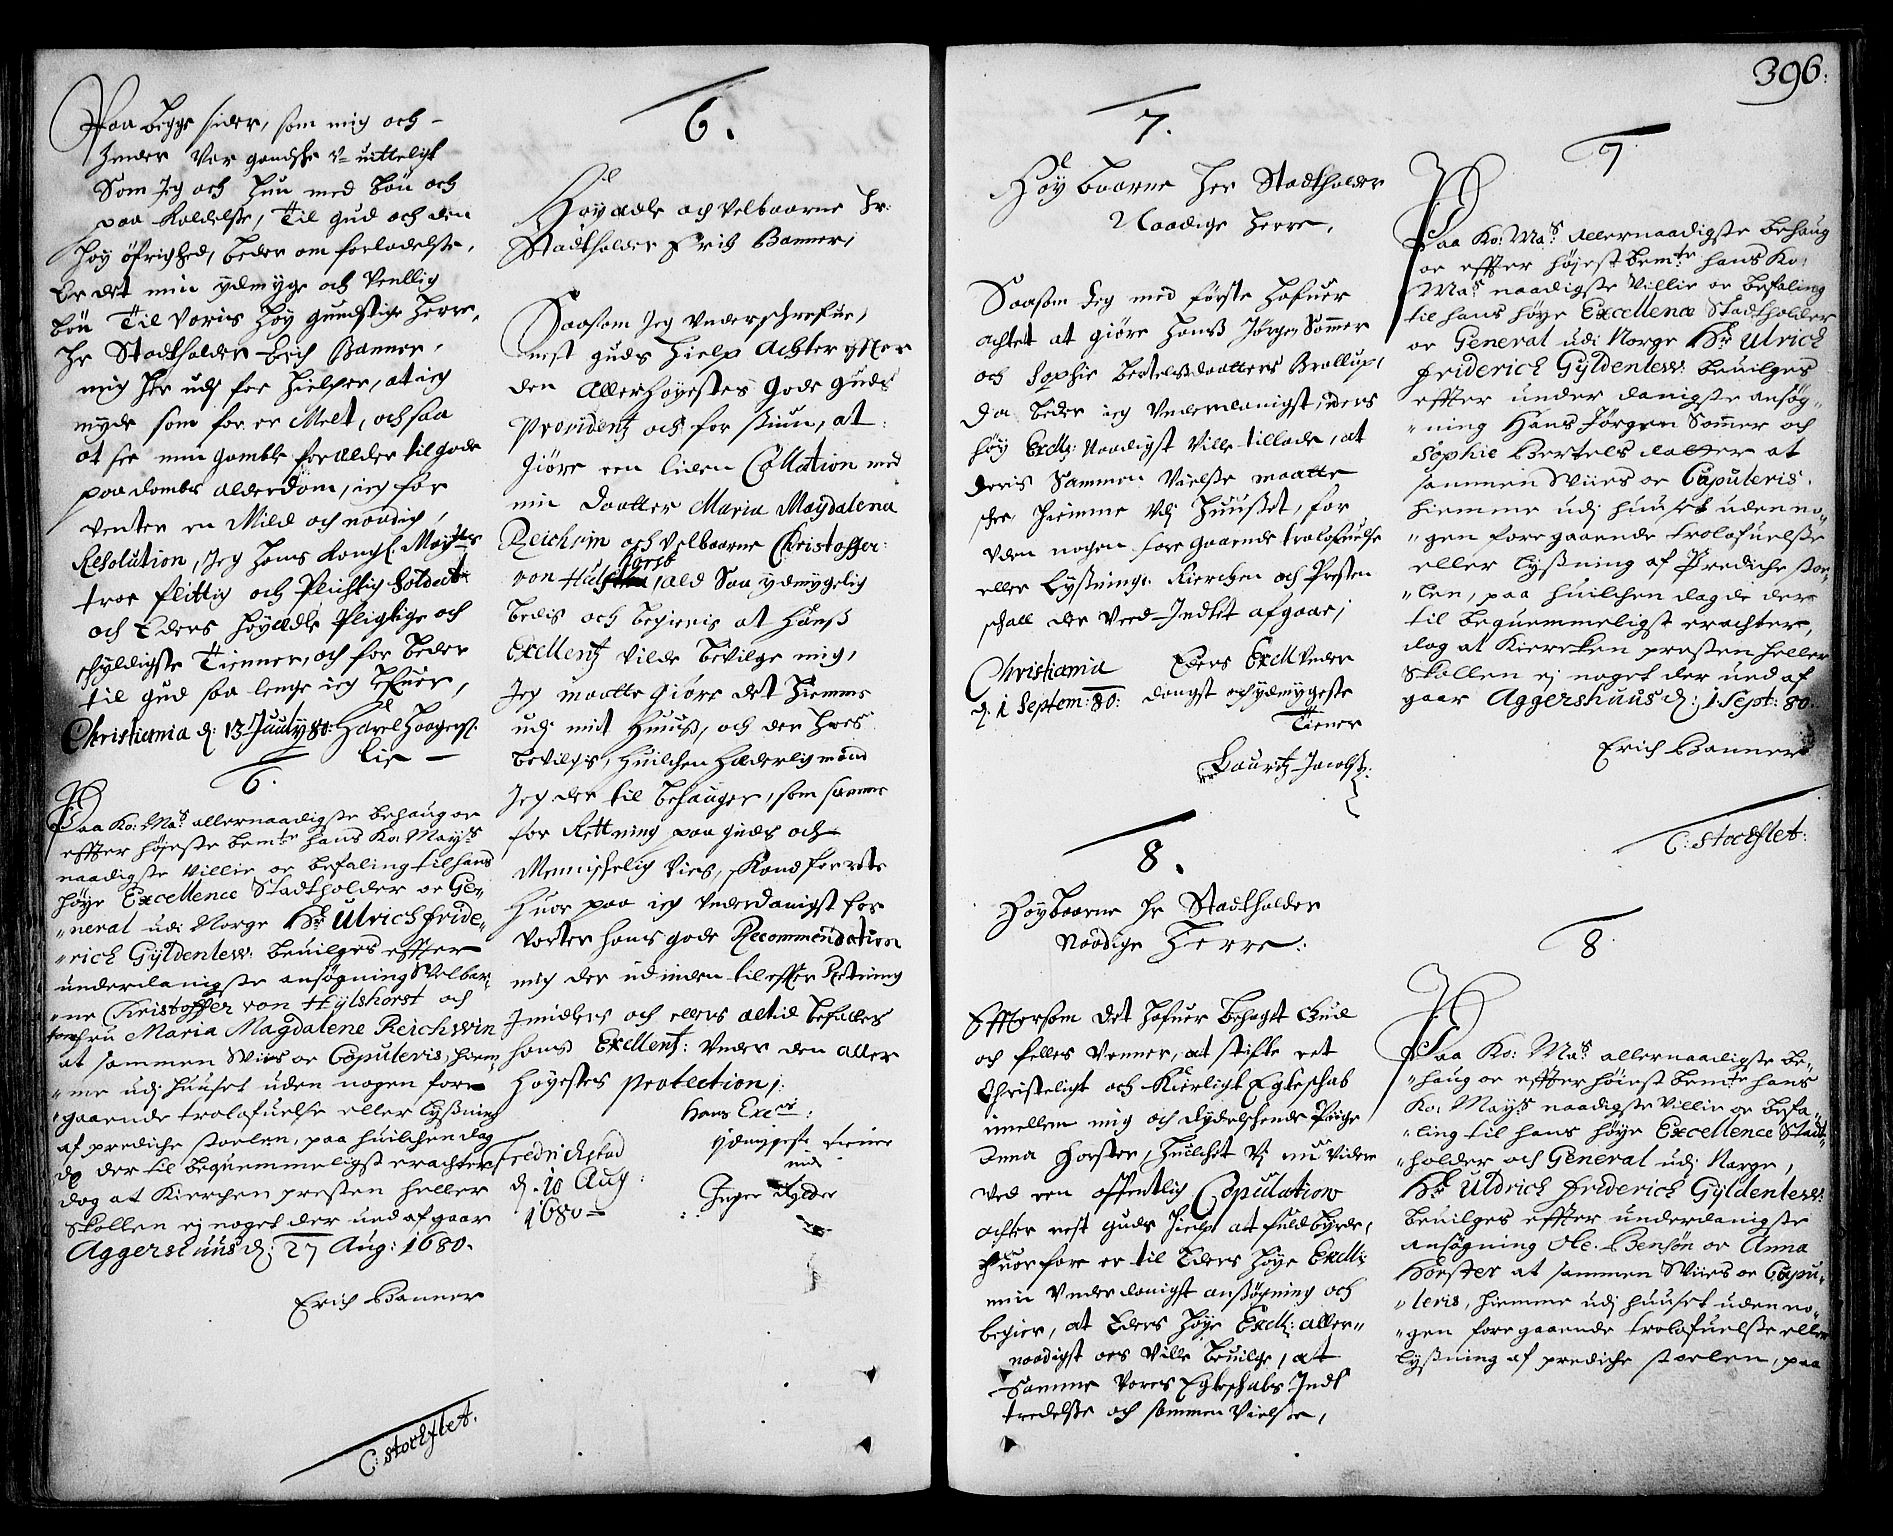 Paa begge sider, som mig och
hender var gandske u-vitteligt
Som Jeg och hun med bøn och
paa Kaldelse, Til gud och den
høy øfrighed, beder om forladelse,
Er det min ydmyge och venllig
bøn Til voris høy gunstige herre,
Hr Stadtholder Erich Banner,
mig her udj for hielper, at ieg
nyde som for er Melt, och saa
at see min gamble forælder til gode
paa dombs alderdom, ieg for
venter en Mild och naadig
Resolution, Jeg hans Kongl. Mayts
troe flittig och Plichtig Soldat
och Eders høyædle Pligtige och
skyldigste Tienner, och for beder
til gud saa lenge ieg lefuer,
Christiania d: 13 July 80. Harel haagens:
Lie
6.
Paa Ko: Mas allernaadigste behaug oc
effter højeste bemte hans Ko: Mays
naadigste villie oc befaling til hans
høje Excellence Stadtholder oc Ge-
"neral udi Norge Hr Ulrich fride-
"rich Gyldenlew: beuilges effter
underdanigste ansøgning Velbar-
"ne Christoffer von Hylshorst och
Jomfru Maria Magdalene Reichwin
at sammen Wiies oc Copuleris, hiem
"me udj huuset uden nogen fore
"gaaende trolofuelse eller lyßning
af prediche stoelen, paa huilchen dag
de der til bequemmeligst erachter,
dog at Kierchen presten heller
Skollen ej noget der ued af gaar
Aggershuus d: 27 Aug: 1680.
Erich Banner
C: Stockflet.
6.
Høyædle och Velbaarne Hr:
Stadtholder Erich Banner,
Saasom Jeg Underschrefue,
nest guds hielp Achter effter
den Allerhøyestes gode guds
Providentz och for siun, at
giøre een liden Collation med
min daatter Maria Magdalena
Reichvin och Velbaarne Christoffer
von Huls horst, ald Saa ydmygelig
bedis och begieris at hanß
Exellentz vilde bevilge mig,
Jeg maatte giøre det hiemme
udj mit Huuß, och der hves
bevilges, huilchen hæderlig mand
Jeg der til behauger, som samme
for Rettning paa guds och
Menniskelig viis, Kand forrette
huor paa ieg underdanigst for
venter hans gode Recommendation
mig der udinden til effter Retning
Jmidlers och ellers altid befalles
hans Exellentz: Under den aller
høyestes protection,
Hans Excs:
ydmygeste tiener
inde
Fredrichstad
d. 10 Aug:
1680
Inger Rytter
396.
7.
Høybaarne Her Stadtholder
Naadige Herre,
Saasom Jeg med første hafuer
achtet at giøre Hanß Jørgen Sommer
och Sophie Bertelßdaatters Brøllup,
Da beder ieg Underdanigst, eders
høy Exell: Naadigst Ville tillade, at
deris Sammen Vielse maatte
skee hiemme Udj Huuset, for
uden nogen fore gaaende trolofuelse
eller Lyßning. Kierchen och Presten
schall der Ved Indtet afgaae,
Christiania
d: 1 Septem: 80:
Eders Exell Under
danigst och ydmygeste
Tiener
Lauritz Jacobß:
7
Paa Ko: Mas Allernaadigste behaug
oc effter højest bemte hans Ko:
Mas naadigste Villie oc befaling
til hans høye Excellence Stadtholder
oc General udi Norge Hr Ulrich
friderich Gyldenlew: beuilges
effter under danigste ansøg-
"ning Hans Jørgen Sommer och
Sophie Bertels datter at
sammen Wiies oc Copuleris.
hiemme udj huuset uden no-
"gen foregaaende trolofuelse
eller lyßning af Prediche stoe-
"len, paa huilchen dag de der
til bequemmeligst erachter,
dog at Kiercken presten heller
Skollen ej noget der ued af
gaar Aggershuus d: 1 Sept: 80.
Erich Banner
C: Stockflet:
8.
Høybaarne Hr Stadtholder
Naadige Herre:
Efftersom det hafuer behagt Gud
och felles Venner, at stifte et
Christeligt och Kierligt Egteschab
imellem mig och dydelschende Pige
Anna Horster, huilchet Vj nu videre
ved een offentlig Copulation
achter nest guds hielp at fuldbyrde,
huorfore er til Eders høye Exell:
min Underdanigst ansøgning och
begier, at Eders høye Exell: aller-
naadigst oes Ville beuilge, att
Samme Vores Egteschabs Ind
tredelse och sammen Vielse,
8.
Paa Ko: Mas allernaadigste be-
"haug oc effter højest bemte hans
Ko: Mays naadigste Villie oc befa-
"ling til hans høje Excellence Stadt-
"holder och General udj Norge,
Hr Uldrich friderich Gyldenlew:
beuilges effter underdanigste
Ansøgning Ole Bensøn oc Anna
Horster at sammen Wiies oc Copu-
"leris, hiemme udj huuset uden no-
"gen fore gaaende trolofuelse eller
lyßning af prediche stoelen, paa